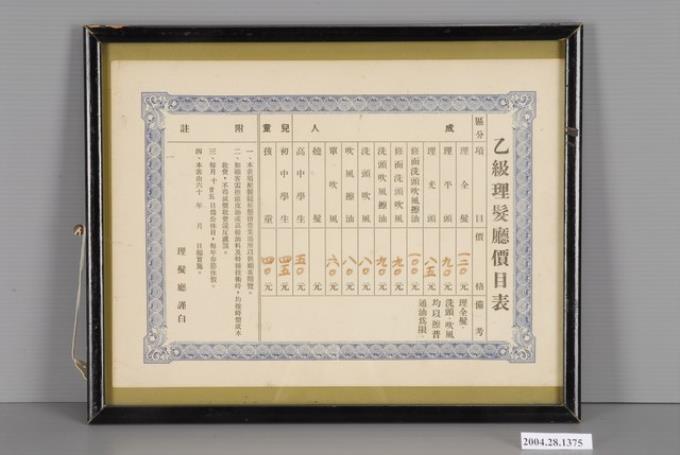 乙級理髮廳價目表
區分 項目 價格 備考
成人
理全髮 一二〇元
理平頭 九〇元
理光頭 八五元
修面洗頭吹風擦油 一〇〇元
修面洗頭吹風 九〇元
洗頭吹風擦油 九〇元
洗頭吹風 八〇元
吹風擦油 八〇元
單吹風 六〇元
燒髮 元
兒童
高中學生 五〇元
初中學生 四五元
孩童 四〇元
理全髮・
洗頭・吹風
均以擦普
通油為限・
附註
三、每月十 廿五日
四、本表由六十 年 月 日起實施。
理髮廳謹白
2004.28.1375